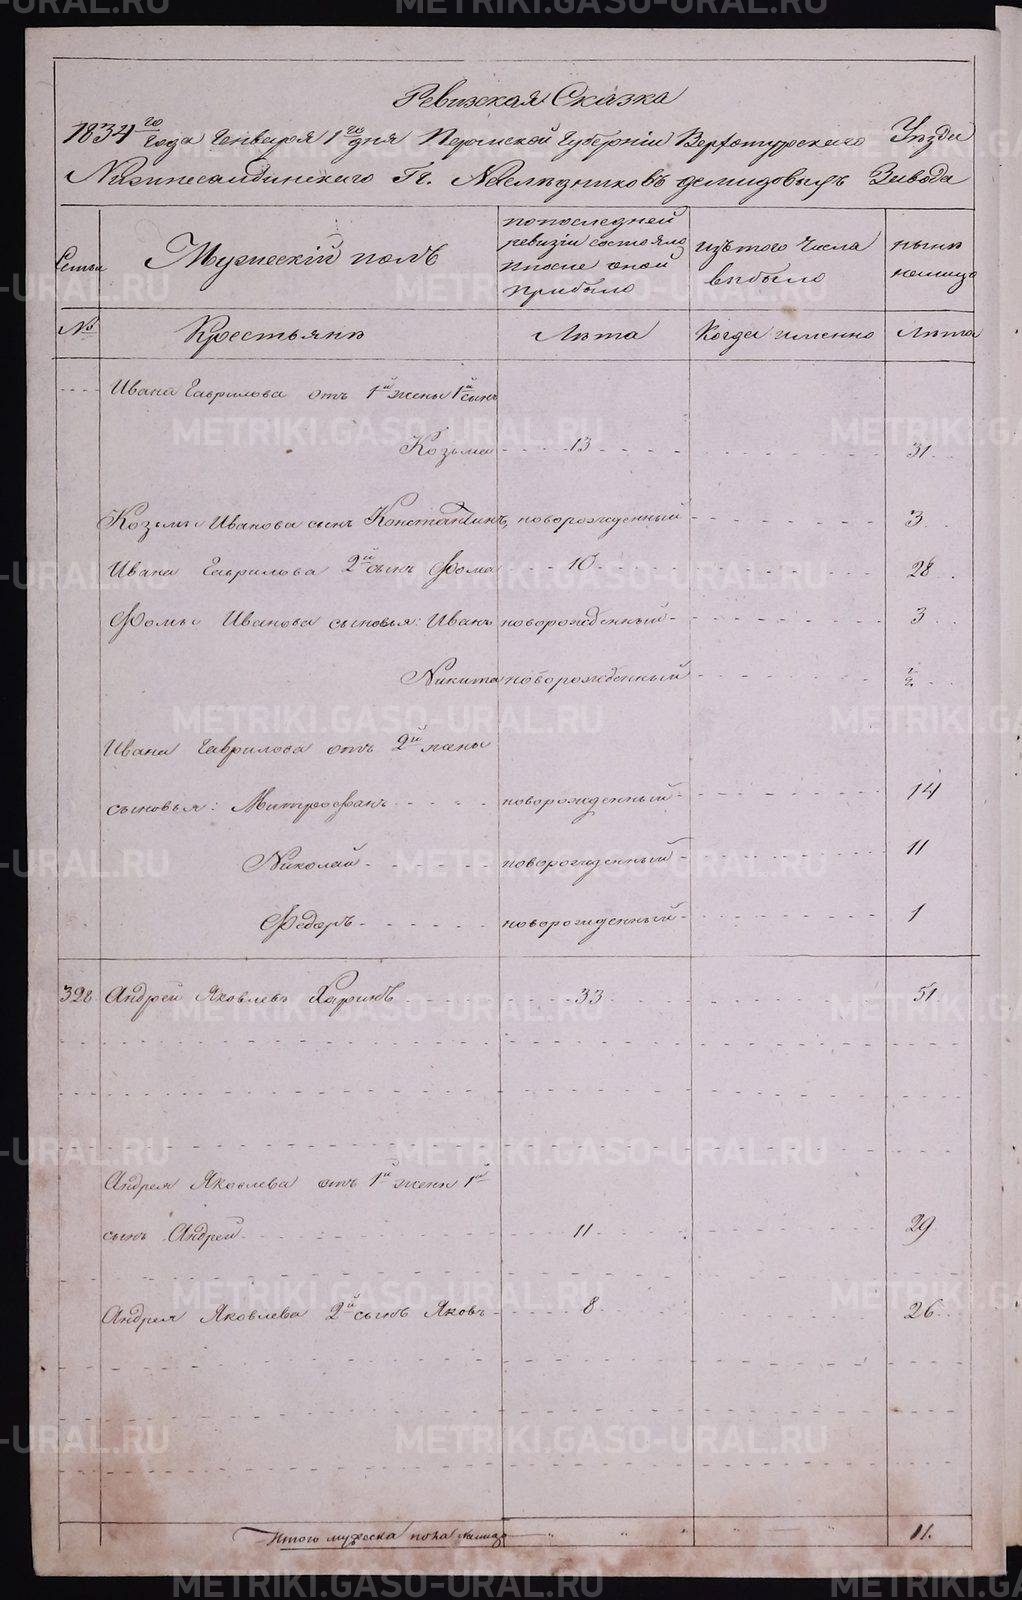 Ревизская Сказка
1834го года Генваря 1го дня Пермской Губернiи Верхотурскаго Уѣзда
Нижнесалдинскаго Гг. Наслѣдниковъ демидовыхъ Завода
Семьи
Мужескiй полъ
по последней
ревизiи состояло
и после оной
прибыло
изъ того числа
выбыло
нынѣ
на лицо
№
Крестьянѣ
Лѣта
Когда именно
Лѣта
Ивана Гаврилова отъ 1й жены 1й сынъ
Козьма 13 31
Козьмы Иванова сынъ Константинъ новорожденный 3
Ивана Гаврилова 2й сынъ Фома 10 28
Фомы Иванова сыновья: Иванъ новорожденный 3
Никита новорожденный 1/2
Ивана Гаврилова отъ 2й жены
сыновья: Митрофанъ новорожденный 14
Николай новорожденный 11
Федоръ новорожденный 1
328 Андрей Яковлевъ Харинъ 33 51
Андрея Яковлева отъ 1й жены 1й
сынъ Андрей 11 29
Андрея Яковлева 2й сынъ Яковъ 8 26
Итого мужеска пола налицо " " 11.
METRIKI.GASO-URAL.RU